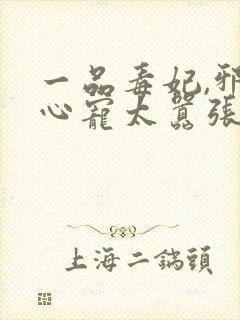 一品毒妃,邪
心寵太囂張
上海二鍋頭